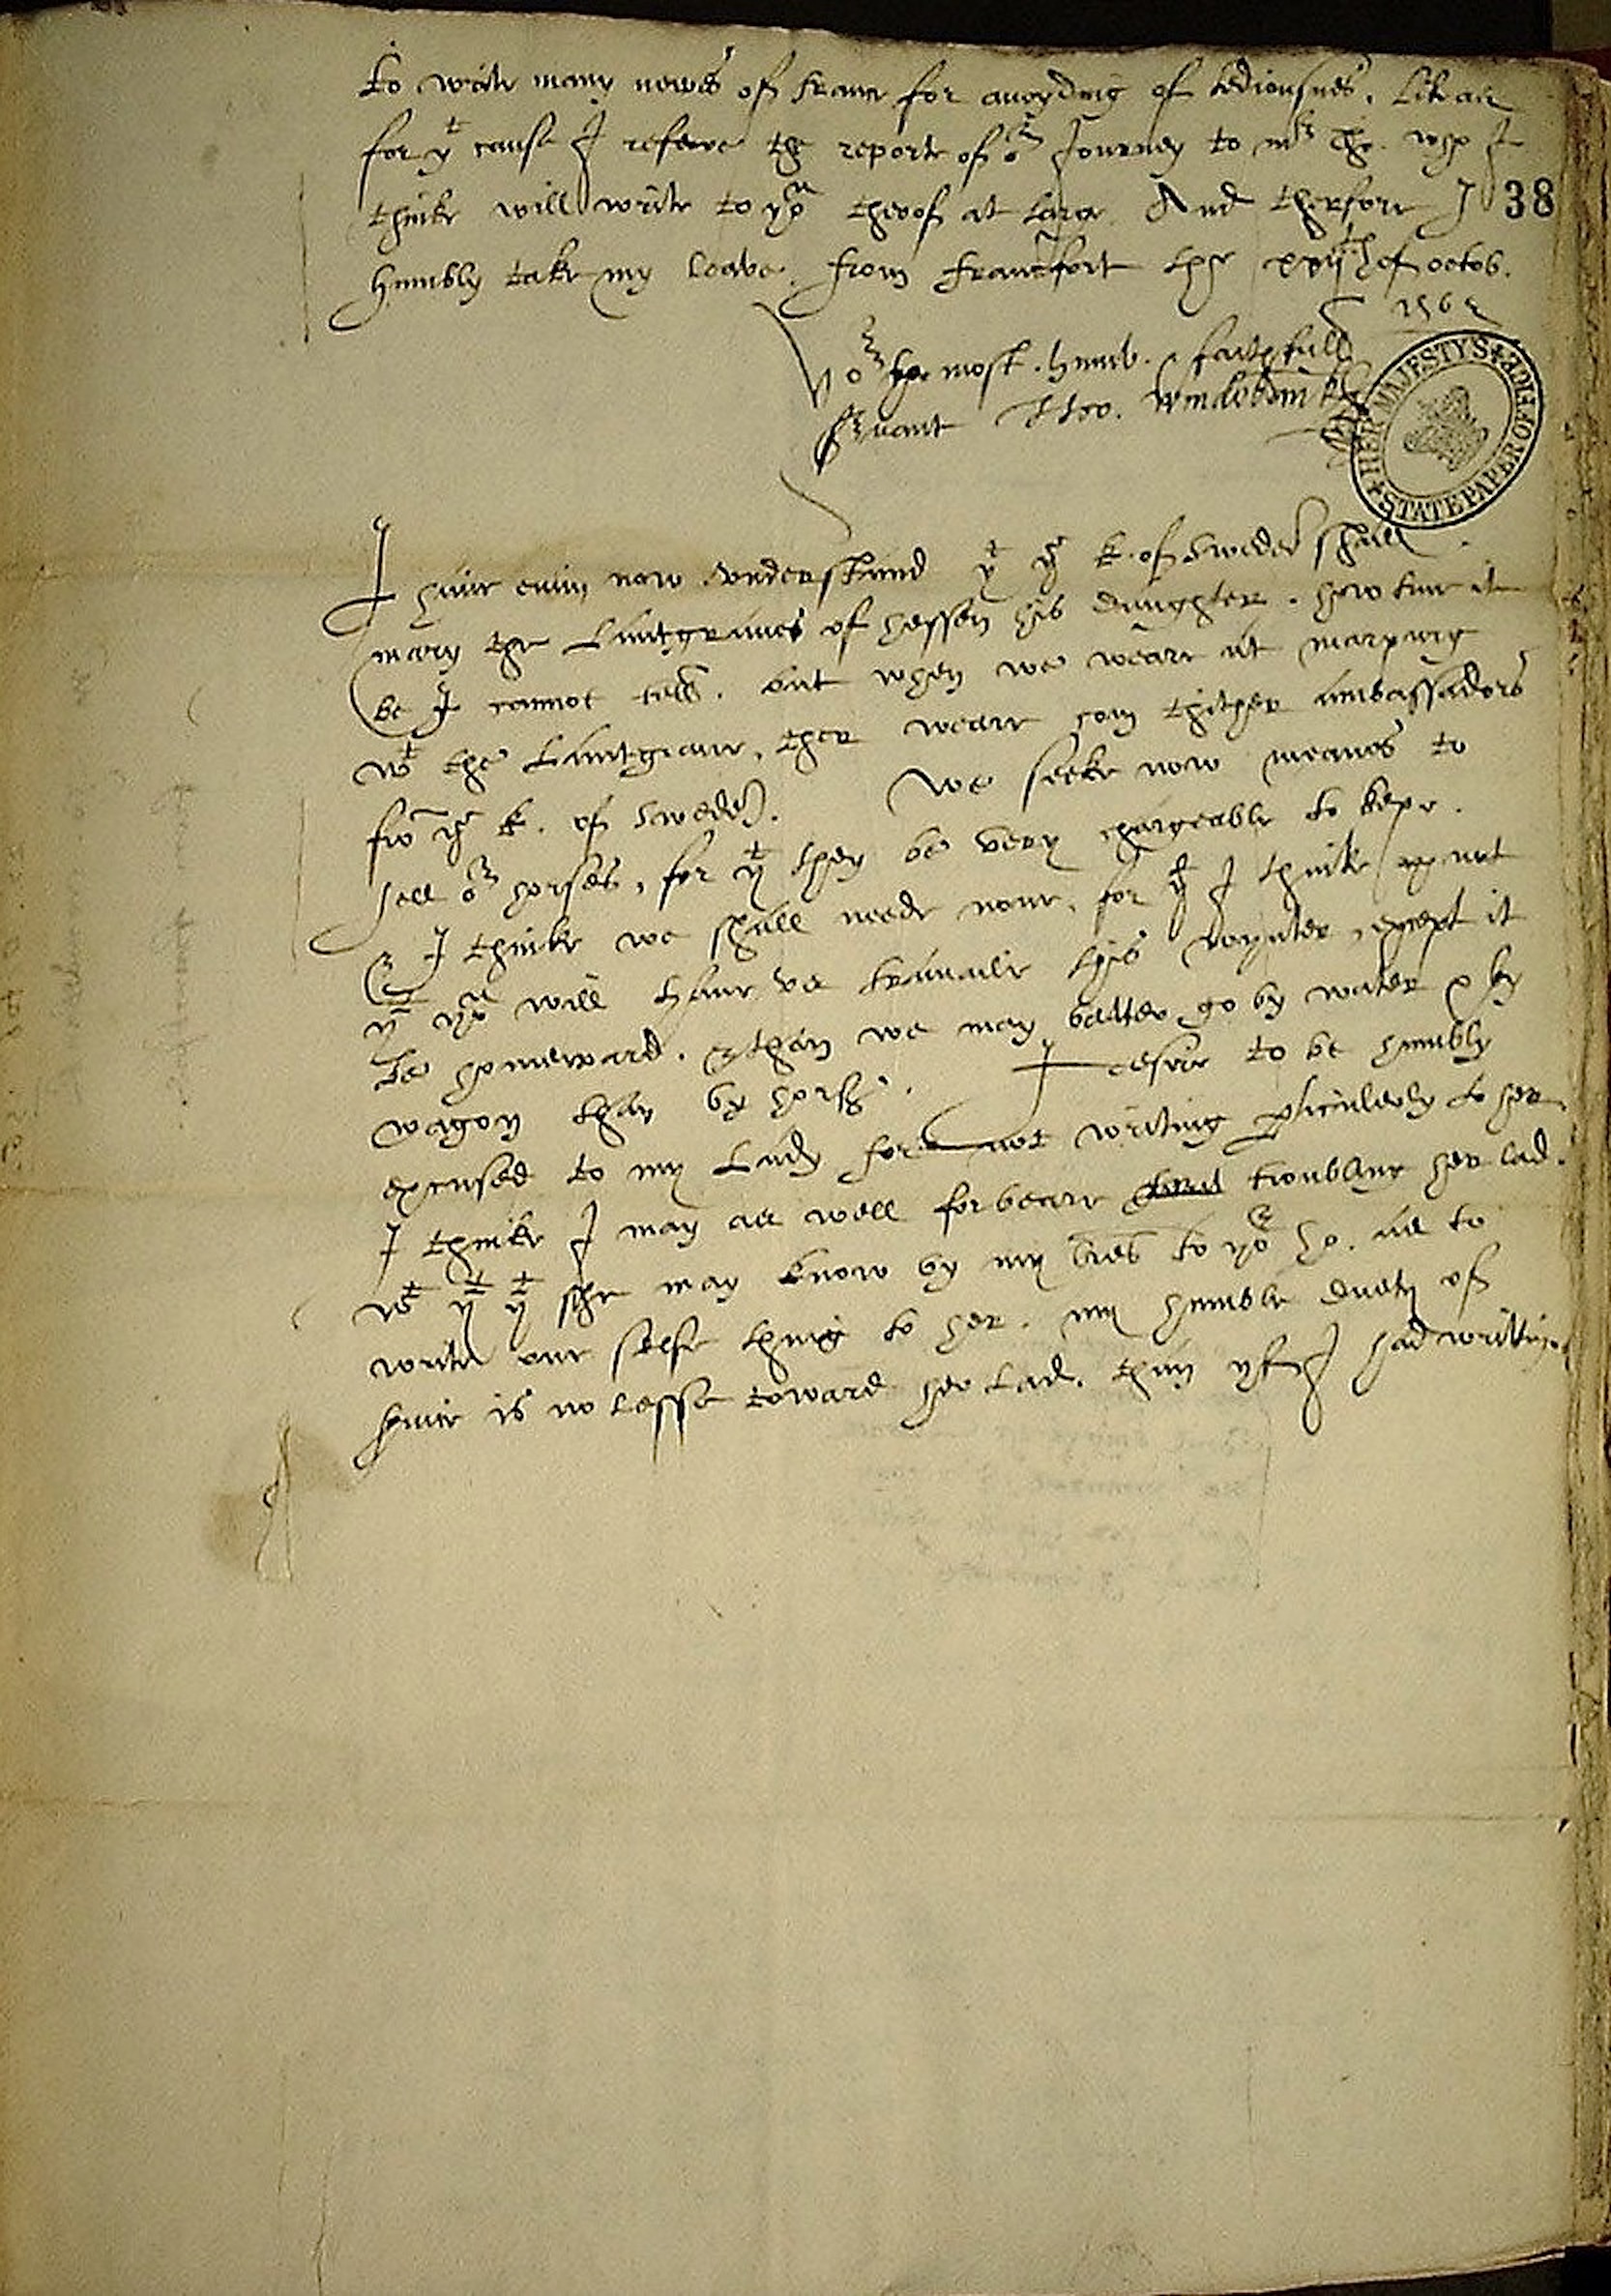 to write many newes of Fraunce for avoyding of tediousnes. Like as
for yt cause I referre the reporte of or Journey to mr Tho. who I
thinke will write to you therof at large. And therfore I
38
humbly take my leave. from Francfort the xxijth of octob.
1562
Yor ho. most humb. & faithfull
servant Tho. Windebank
HER MAJESTY'S STATE PAPER OFFICE
I have evin now understand yt ye K. of Sweden shall
mary the Lantgraves of Hessen his daughter. how true it
be I cannot tell. but when we weare at marpurg
wt the Lantgrave, ther weare com thither ambassadors
fro ye K. of Sweden. We seeke now meanes to
sell or horses, for yt they be very chargeable to kepe.
& I thinke we shall neede none, for yt I thinke not
yt you will have us travaile this wynter, except it
be homeward. & than we may better go by water & by
wagon than by horse. I desire to be humbly
excused to my Lady for not writing particulerly to her.
I thinke I may as well forbeare troubling her lad.
wt yt yt she may know by my lres to yor ho. as to
write one selfe thing to her. my humble duety of
is no lesse toward her Lad. than yf I had written.